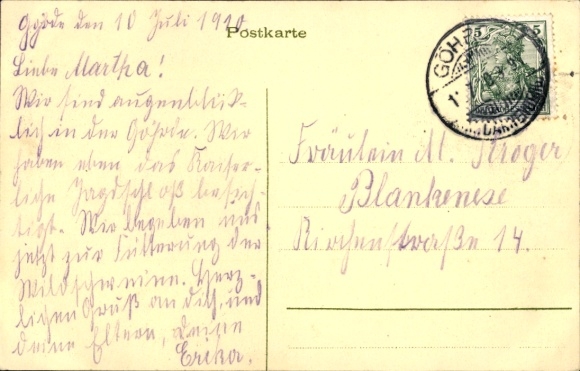 Göhrde den 10 Juli 1910
Postkarte
Liebe Martha!
Wir sind augenblick-
lich in der Göhrde. Wir
haben eben das Kaiser-
liche Jagdschloß besich-
tigt. Wir begeben uns
jetzt zur Fütterung der
Wildschweine. Herz-
lichen Gruß an dich, und
deine Eltern, deine
Erika.
5 5
GÖHRDE
Fräulein M. Kröger
Blankenese
Kirchenstraße 14.